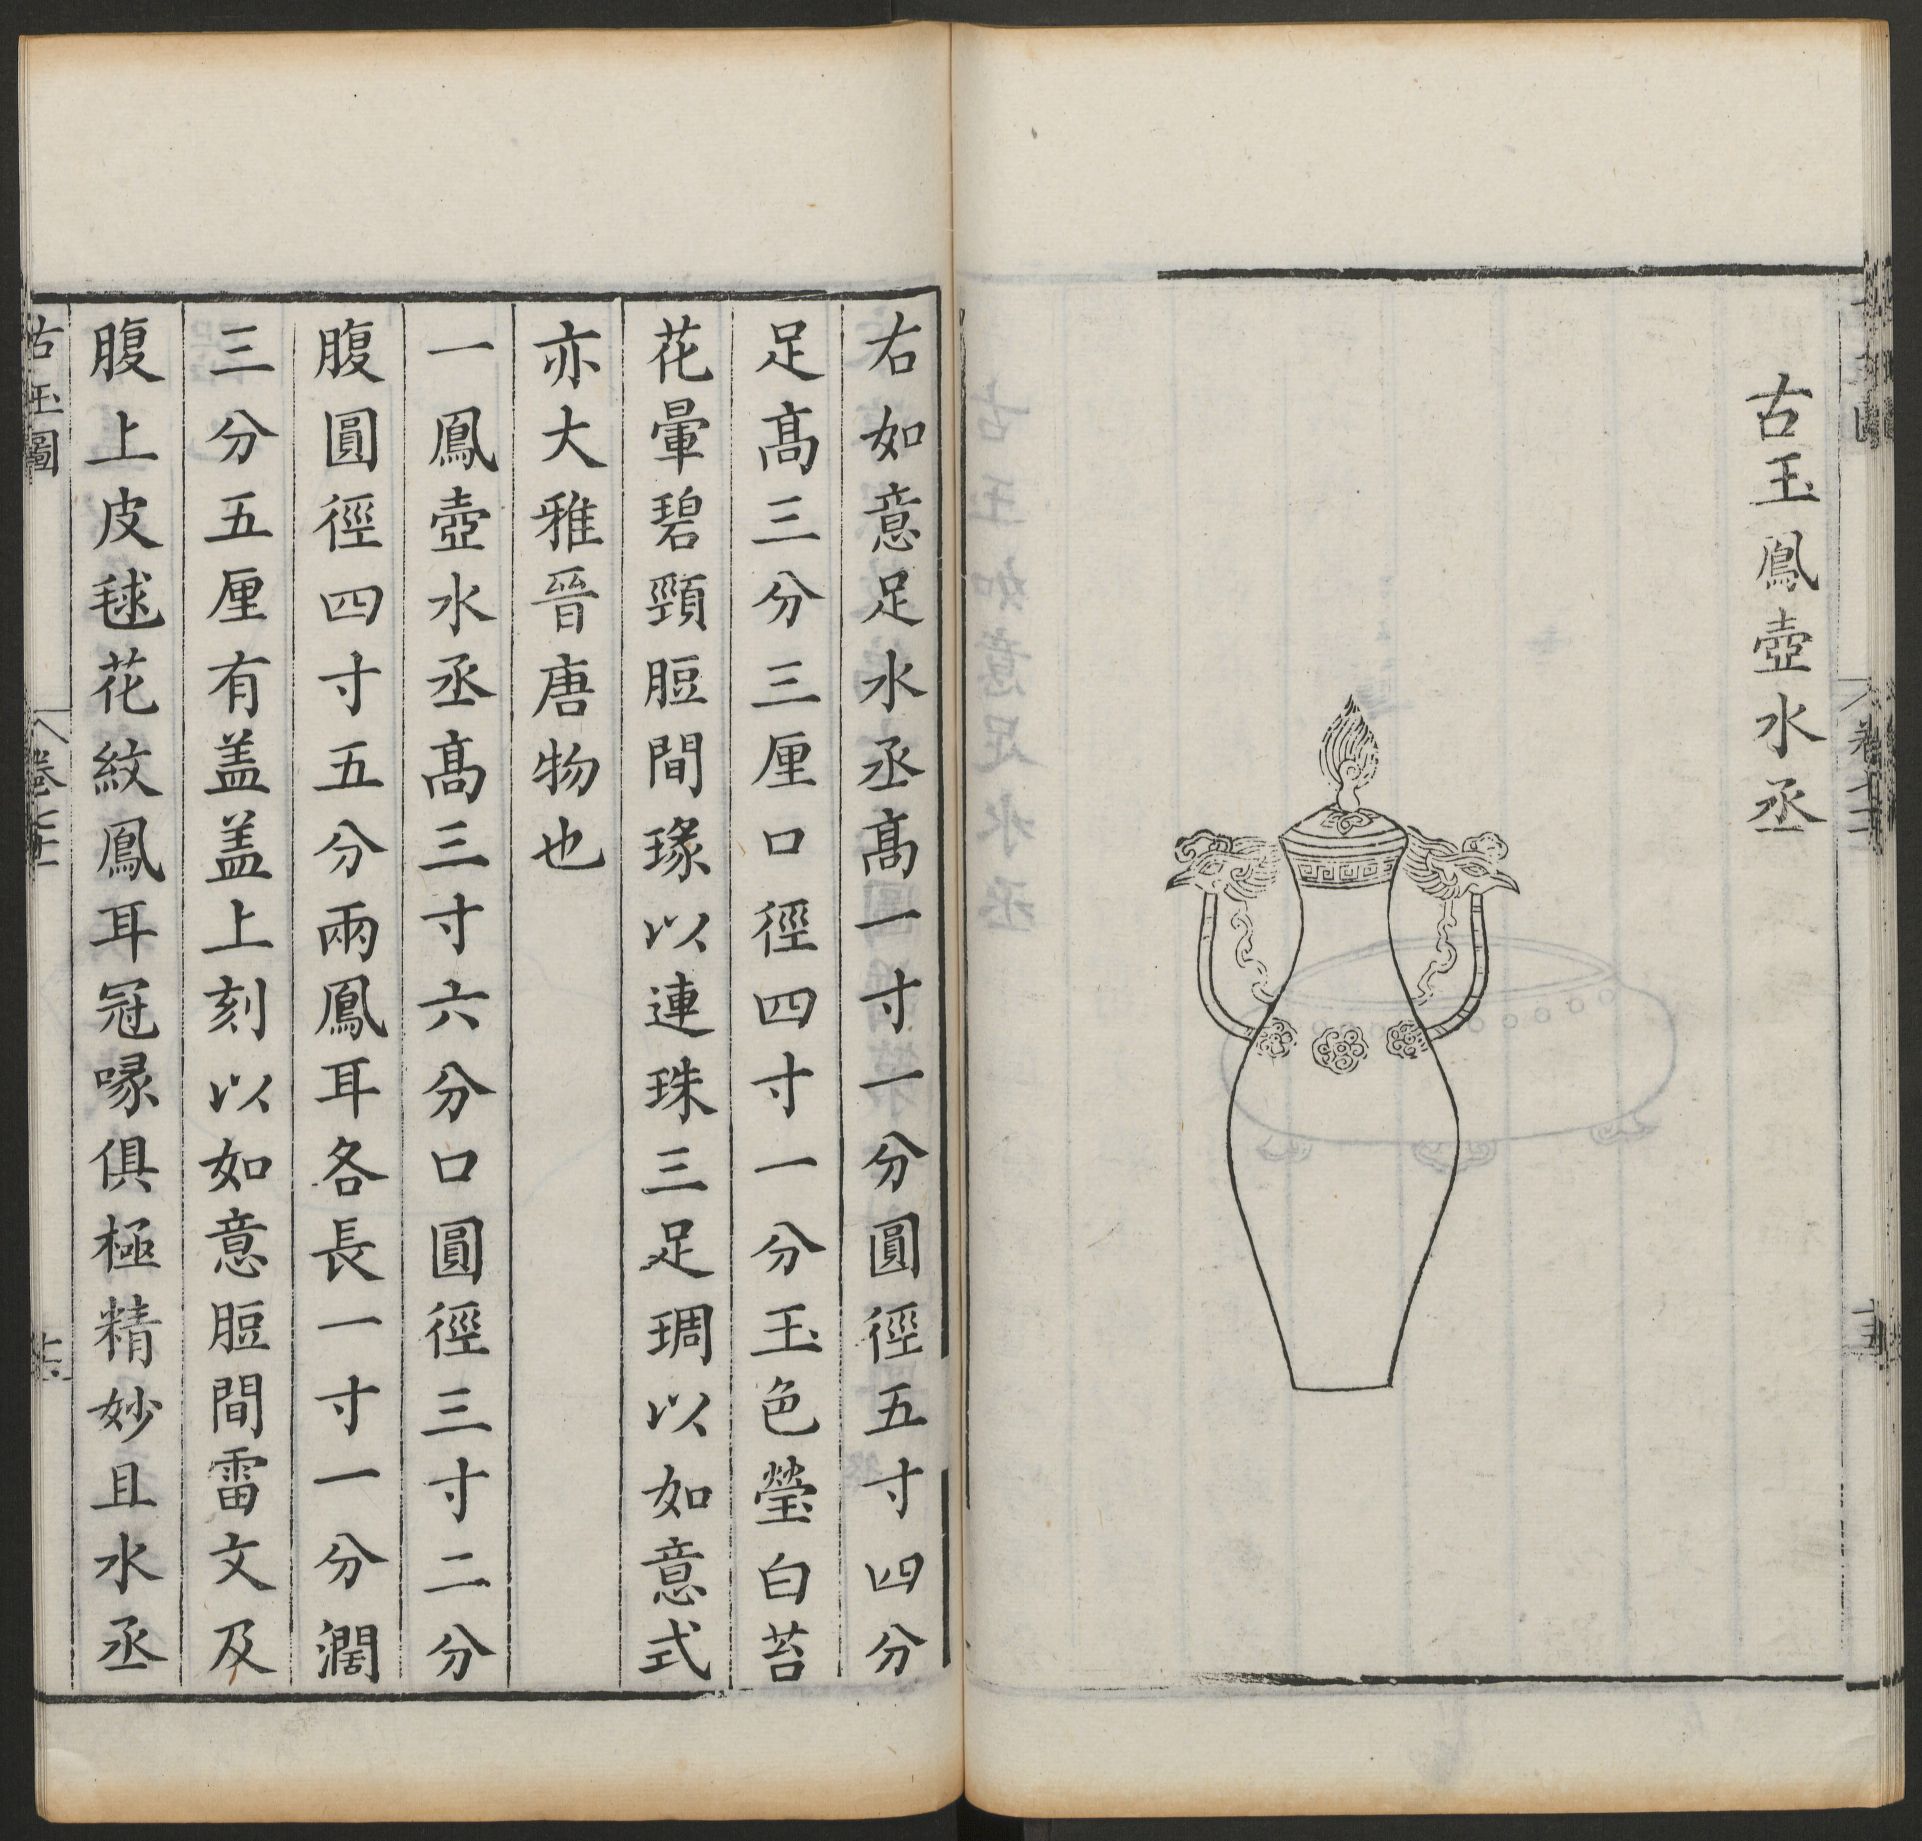 古玉鳳壺水丞
右如意足水丞高一寸一分圓徑五寸四分
足高三分三厘口徑四寸一分玉色瑩白苔
花暈碧頸脰間瑑以連珠三足琱以如意式
亦大雅晉唐物也
一鳳壺水丞高三寸六分口圓徑三寸二分
腹圓徑四寸五分兩鳳耳各長一寸一分濶
三分五厘有盖盖上刻以如意脰間雷文及
腹上皮毬花紋鳳耳冠喙俱極精妙且水丞
古玉圖